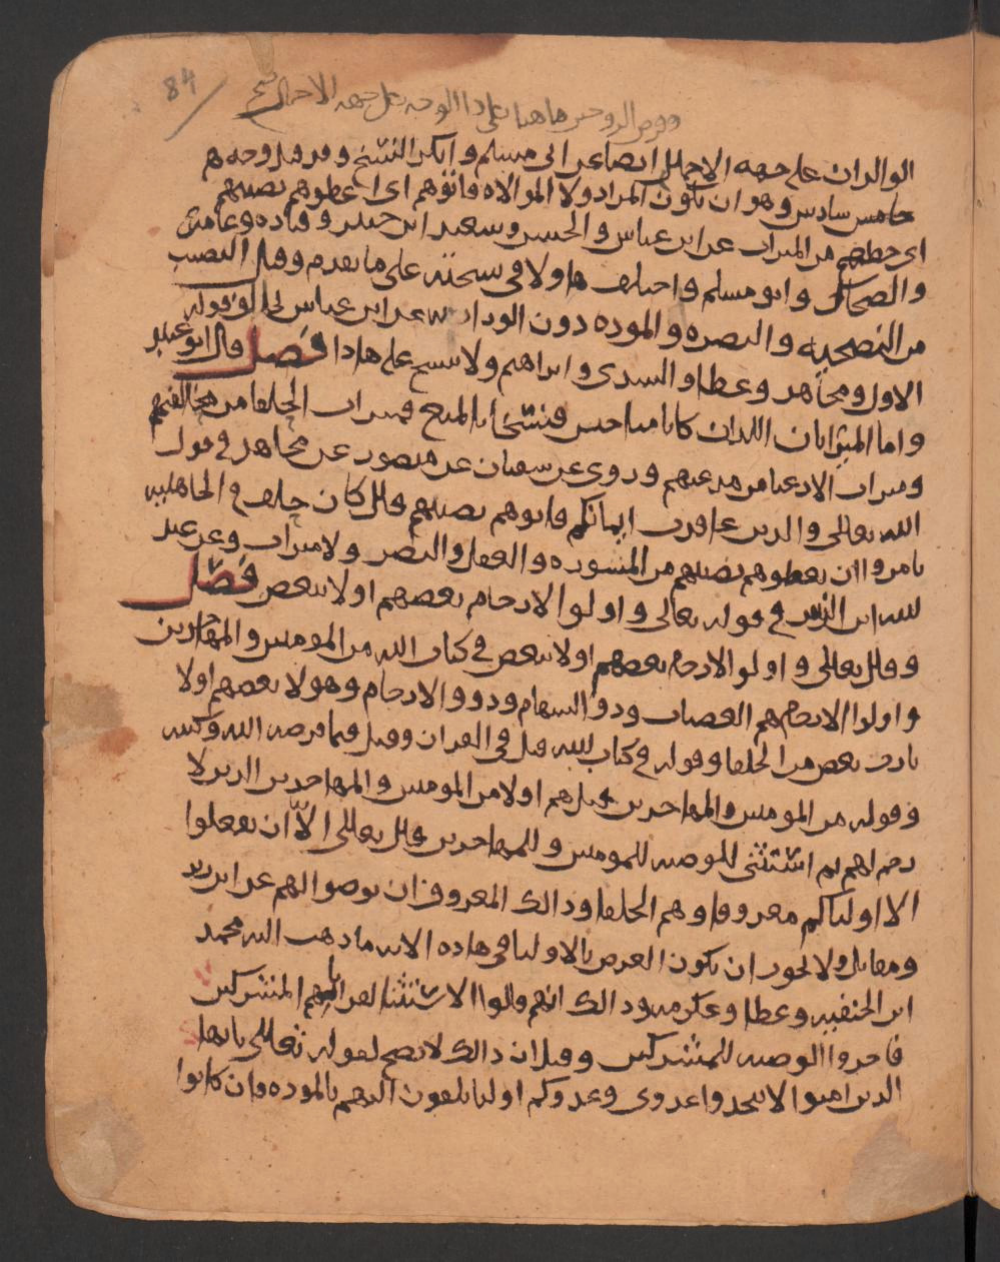 84
وفرض الزوجين هاهنا على هذا الوجه على جهة الاجمال نسخ
الوالدان على جهة الاجمال ايضا عن ابي مسلم وانكر النسخ وقد قيل وجه
خامس سادس وهو ان يكون المراد ولا الموالاه فاتوهم اي اعطوهم نصيبهم
اي حظهم من الميراث عن ابن عباس والحسن وسعيد ابن جبير وقتاده وعامر
والضحاك وابو مسلم واختلف هاولا في نسخته على ما تقدم وقيل النصيب
من النصيحه والنصره والموده دون الوراثه عن ابن عباس
الاول ومجاهد وعطا والسدي وابراهيم ولا نسخ على هاذا فصل قال ابو عبيد
واما الميراثان اللذان كانا مباحين فنسخا بالمنع فميراث الحلفا من محالفتهم
وميراث الادعيا من مدعيهم وروى عن سفيان عن منصور عن مجاهد في قول
الله تعالى والذين عاقدت ايمانكم فاتوهم نصيبهم قال كان حلف في الجاهليه
فامروا ان يعطوهم نصيبهم من المشوره والعقل والنصر ولا ميراث وعن عبد
لله ابن الزبير في قوله تعالى واولوا الارحام بعضهم اولا ببعض فصل
وقال تعالى واولو الارحام بعضهم اولا ببعض في كتاب الله من المومنين والمهاجرين
واولوا الارحام هم العصبات وذوو السهام وذوو الارحام وهولا بعضهم اولا
بارث بعض من الحلفا وقوله في كتاب الله قيل في القران وقيل فيما فرضه الله وكتبه
وقوله من المومنين والمهاجرين قيل هم اولا من المومنين والمهاجرين الذين لا
رحم لهم ثم استثنى للوصيه للمومنين وللمهاجرين قال تعالى الا ان تفعلوا
الا اولياكم معروفا وهم الحلفا وذالك المعروف ان يوصوا لهم عن ابن زيد
ومقاتل ولا يجوز ان يكون الغرض بالاوليا في هاذه الايه ما ذهب اليه محمد
ابن الحنفيه وعطا وعكرمه وذالك انهم قالوا الاستثنا لقراباتهم المشركين
فاجروا الوصيه للمشركين وقيل ان ذالك لا يصح لقوله تعالى يايها
الذين امنوا لا تتخذوا عدوي وعدوكم اوليا تلقون اليهم بالموده وان كانوا